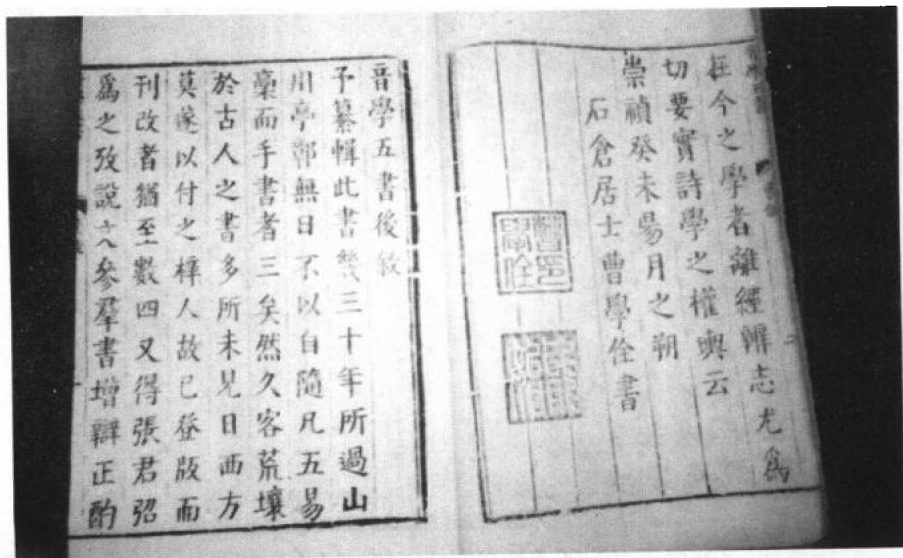 在今之學者離經辨志尤爲
切要實詩學之權輿云
崇禎癸未昜月之朔
石倉居士曹學佺書
曹印
學佺
音學五書後敘
予纂輯此書幾三十年所過山
川亭鄣無日不以自隨凡五易
稾而手書者三矣然久客荒壤
於古人之書多所未見日西方
莫遂以付之梓人故已登版而
刊改者猶至數四又得張君弨
爲之攷說文參羣書增辯正酌